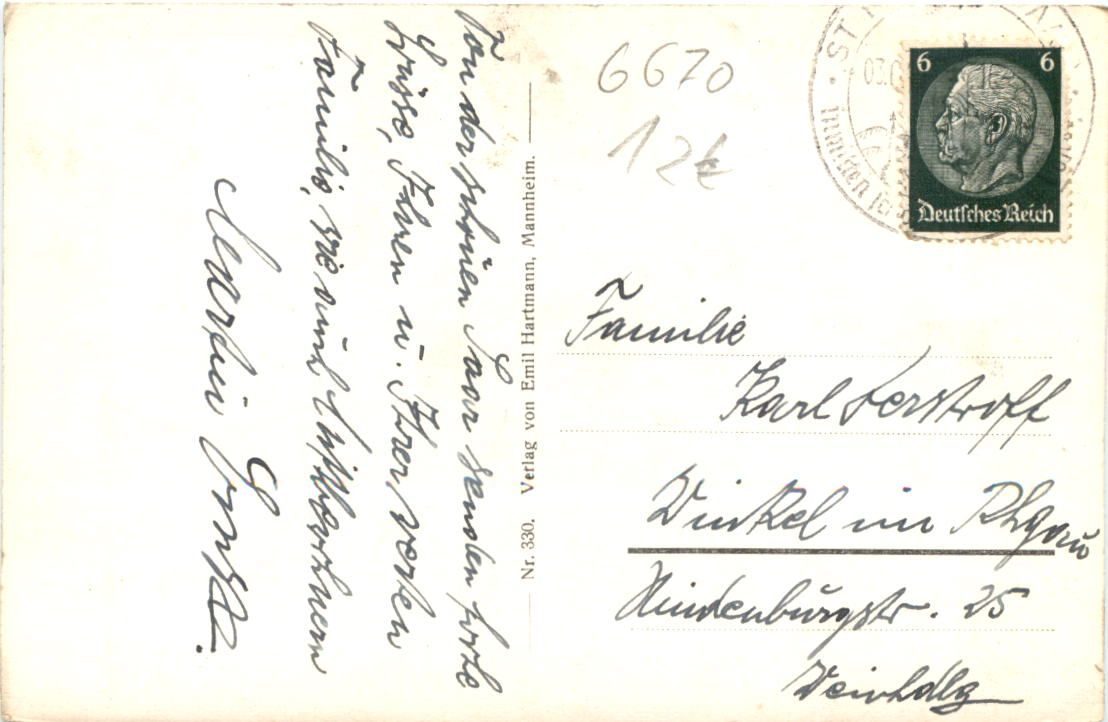 Von der schönen Saar senden herzl.
Grüsse, Ihnen u. Ihrer werten
Familie, sie und
Martin Ernst.
Nr. 330. Verlag von Emil Hartmann, Mannheim.
6670
12€
ST
03.0
inmitten
6 6
Deutsches Reich
Familie
Karl Ferstroff
Winkel im Rhgau
Hindenburgstr. 25
Weinhdlg